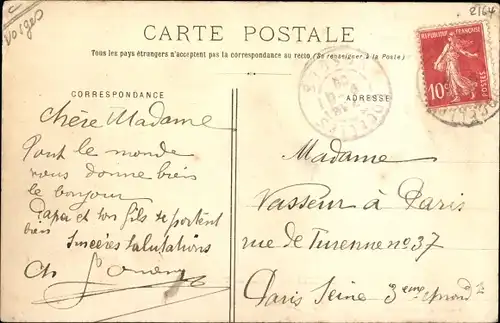 Vosges
2164
CARTE POSTALE
Tous les pays étrangers n'acceptent pas la correspondance au recto (Se renseigner à la Poste)
CORRESPONDANCE
ADRESSE
REPUBLIQUE FRANÇAISE
10c
POSTES
Chère Madame
Tout le monde
vous donne bien
le bonjour
Papa et son fils se portent
bien
Sincères salutations
Ch
Madame
Vasseur à Paris
rue de Turenne no 37
Paris Seine 3eme